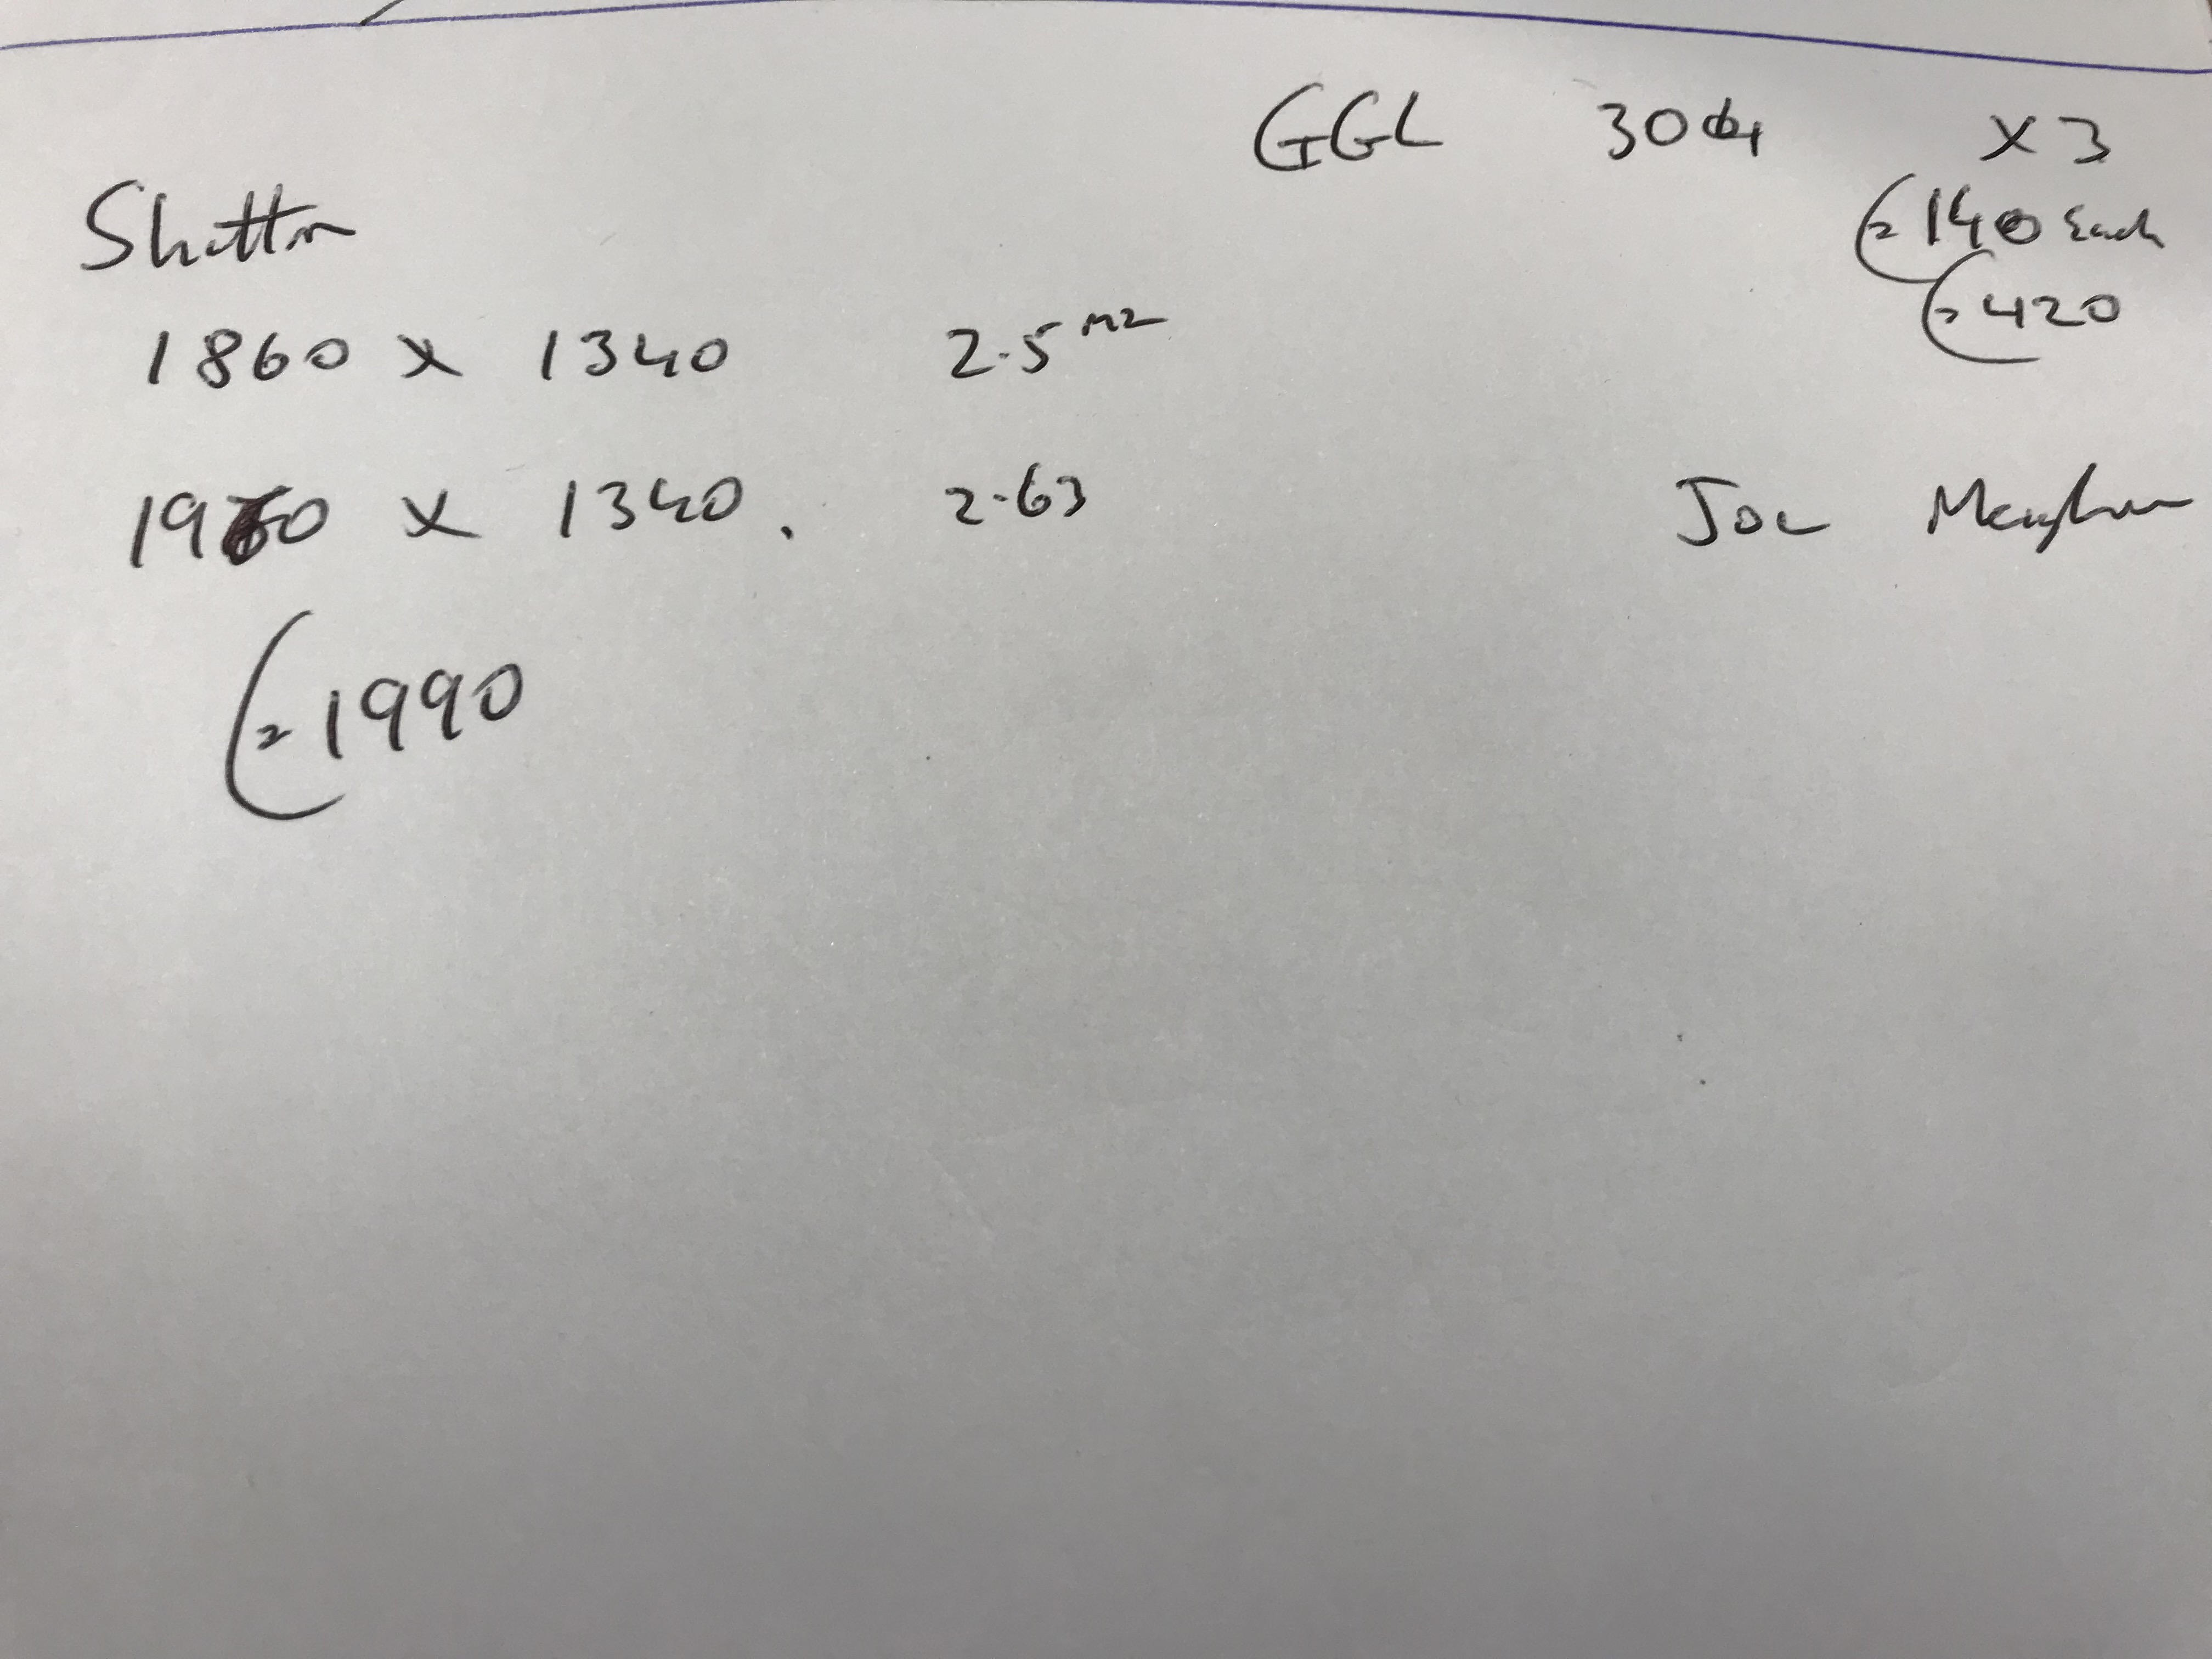 GGL 304 x 3
€140 Each
€420
Shutter
1860 x 1340 2.5 m2
1960 x 1340. 2.63
Joe
€1990